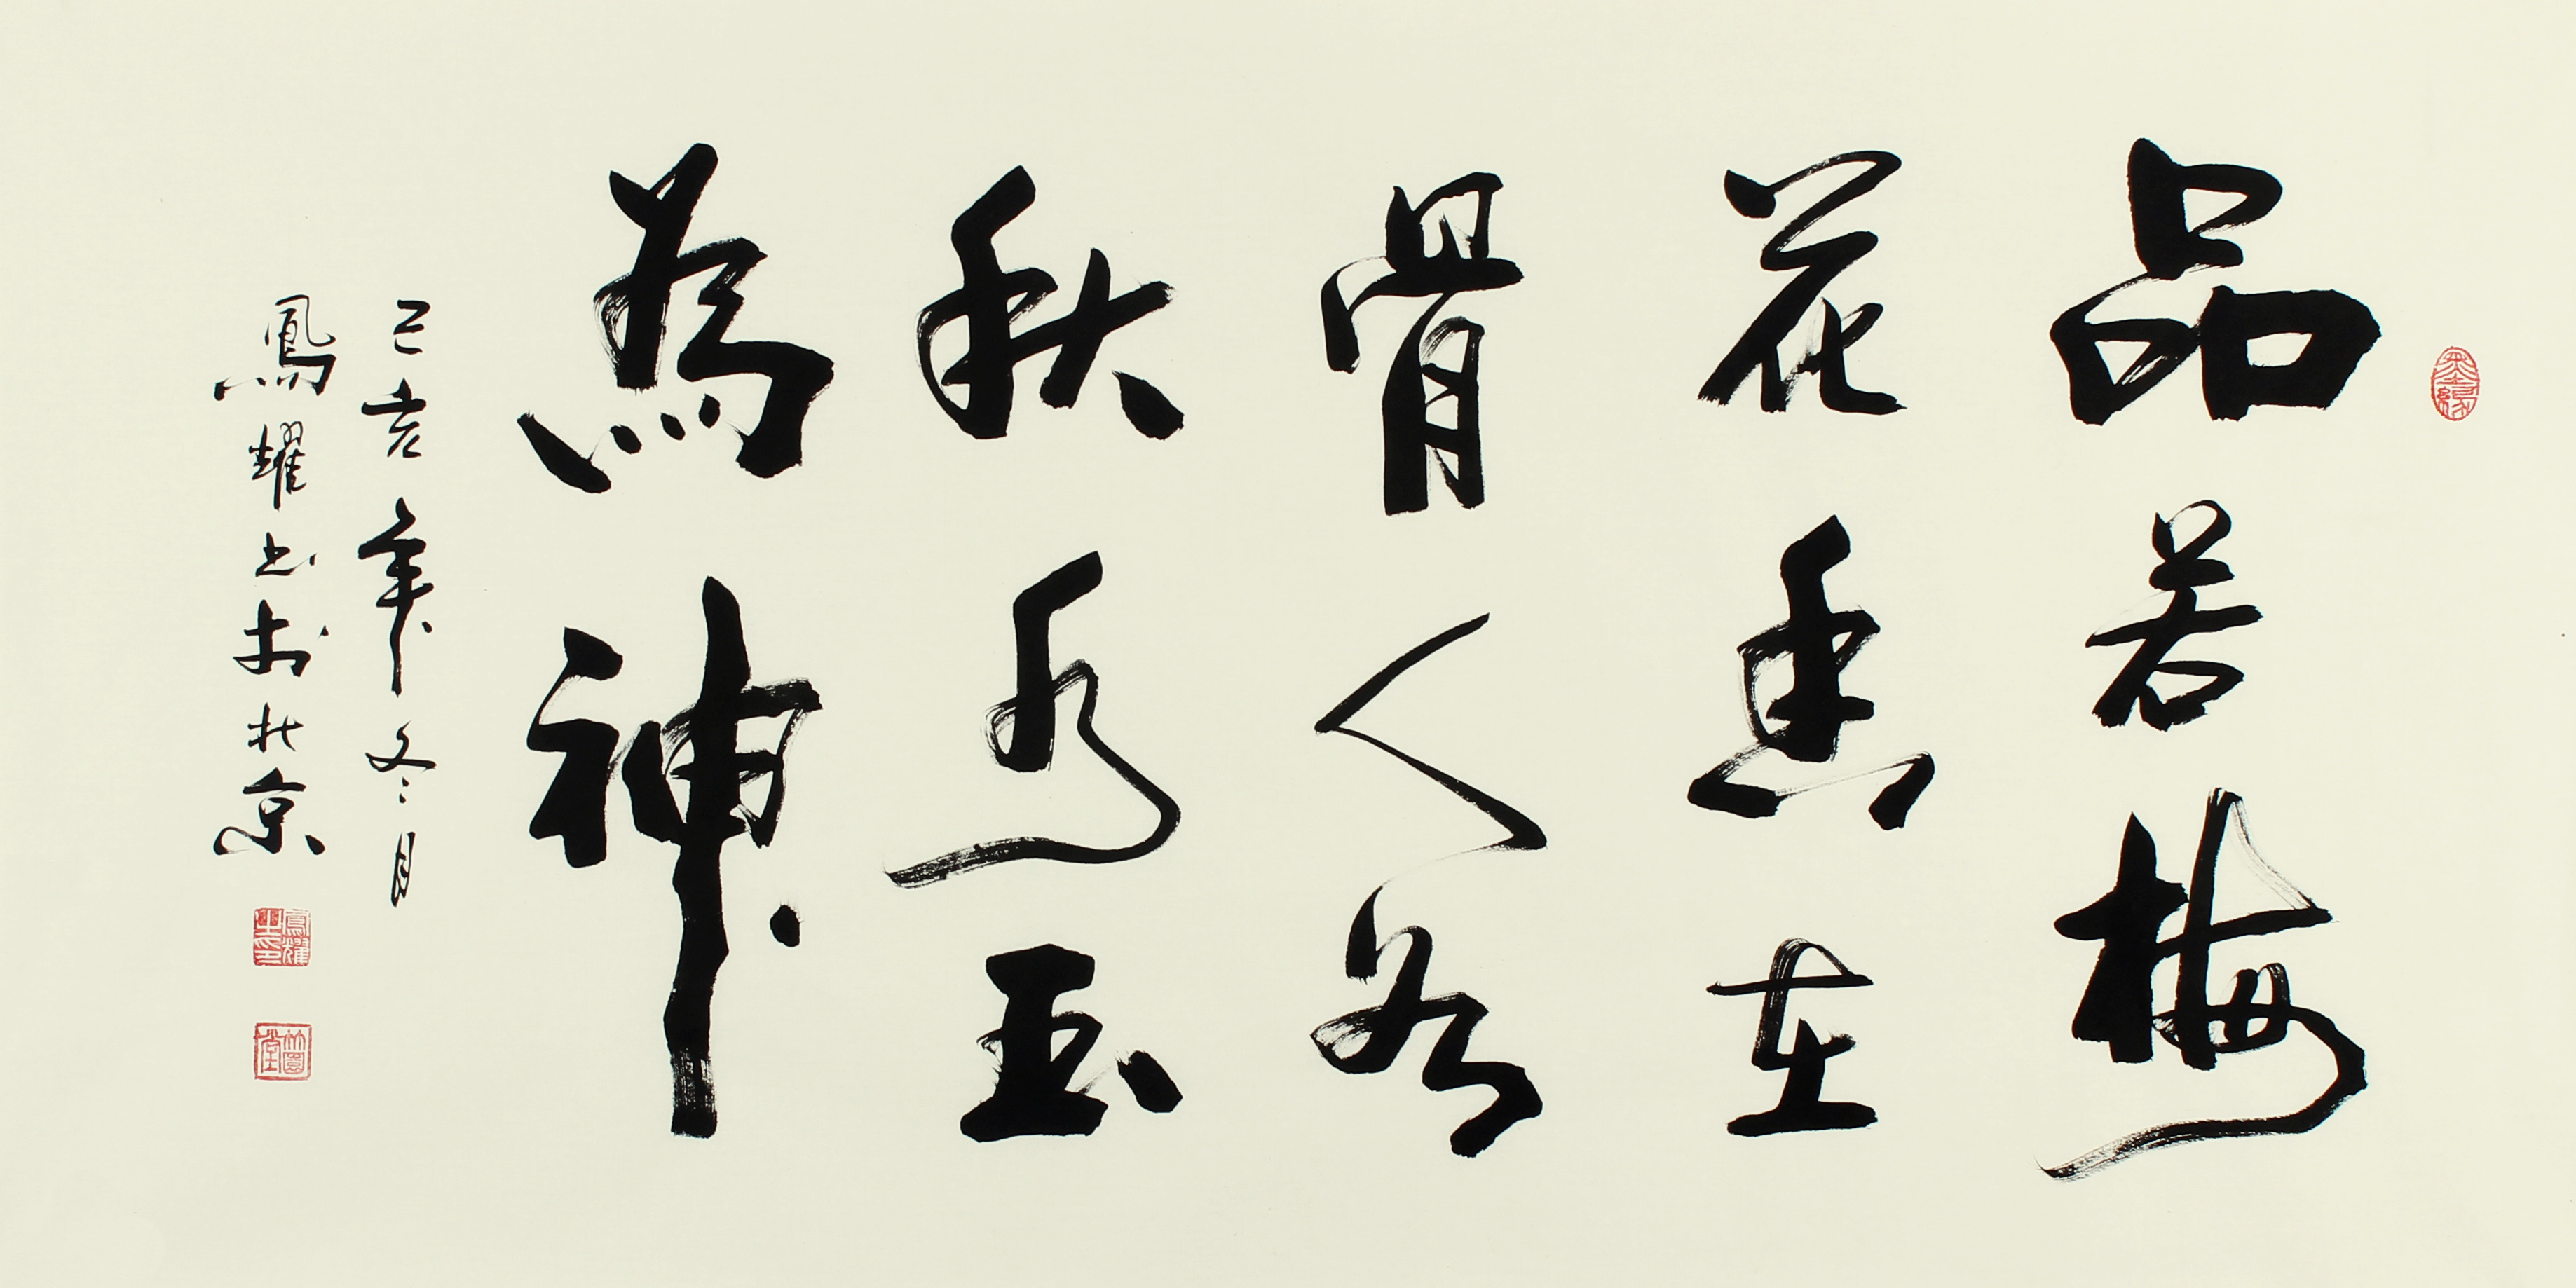 品若梅
花香在
骨人如
秋水玉
為神
己亥年冬月
鳳耀書於北京
墨緣
鳳耀之印